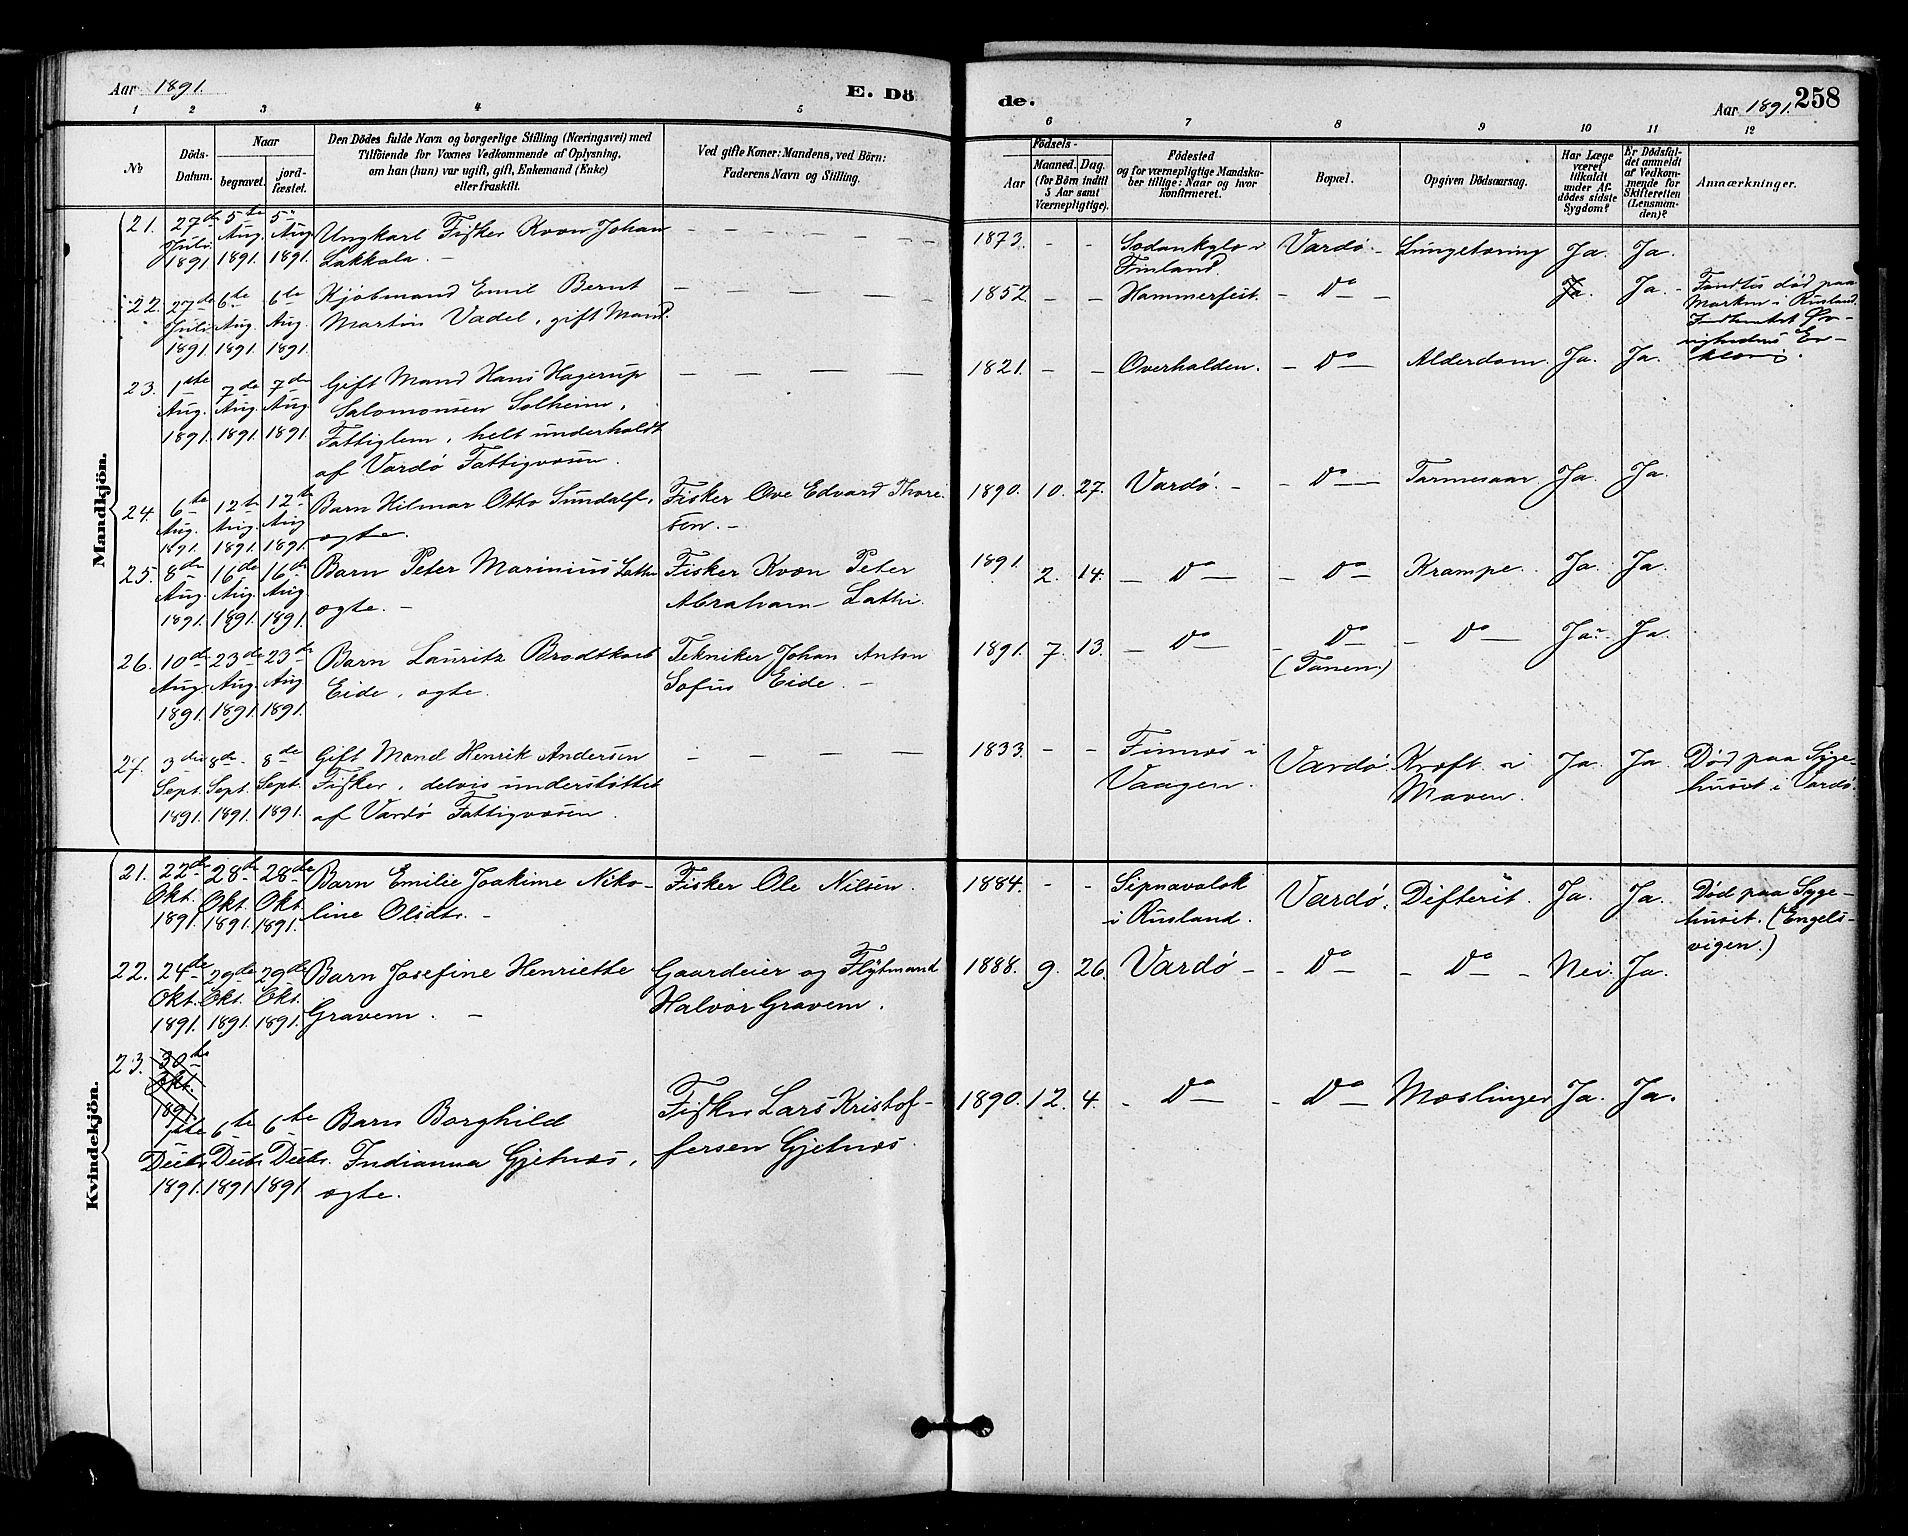 Aar 1891.
E. Dö
1 2 3 4 5
No
Döds-
Datum.
Naar
begravet.
jord-
fæstet.
Den Dödes fulde Navn og borgerlige Stilling (Næringsvei) med
Tilföiende for Voxnes Vedkommende af Oplysning,
om han (hun) var ugift, gift, Enkemand (Enke)
eller fraskilt.
Ved gifte Koner: Mandens, ved Börn:
Faderens Navn og Stilling.
Mandkjön.
21. 27de Juli 1891 5te Aug. 1891. 5te Aug. 1891.
Ungkarl Fisker Kvæn Johan
Lakkala. –
22. 27de Juli 1891 6te Aug. 1891. 6te Aug. 1891.
Kjøbmand Emil Bernt
Martin Vadel, gift Mand.
23. 1ste Aug. 1891. 7de Aug. 1891. 7de Aug. 1891.
Gift Mand Hans Hagerup
Salomonsen Solheim,
Fattiglem, helt underholdt
af Vardø Fattigvæsen.
24. 6te Aug. 1891. 12te Aug. 1891. 12te Aug 1891.
Barn Hilmar Otto Sundalf,
ægte.
Fisker Ove Edvard Thore-
sen. –
25. 8de Aug. 1891. 16de Aug. 1891. 16de Aug. 1891.
Barn Peter Marinius Lathi
ægte. –
Fisker Kvæn Peter
Abraham Lathi.
26. 10de Aug. 1891. 23de Aug. 1891. 23de Aug 1891.
Barn Lauritz Brodtkorb
Eide, ægte.
Tekniker Johan Anton
Sofus Eide. –
27. 3die Sept. 1891. 8de Sept. 1891. 8de Sept. 1891.
Gift Mand Henrik Andersen
Fisker, delvis understøttet
af Vardø Fattigvæsen.
Kvindekjön.
21. 22de Okt. 1891. 28de Okt. 1891. 28de Okt. 1891.
Barn Emilie Joakime Niko-
line Olsdtr. –
Fisker Ole Nilsen.
22. 24de Okt. 1891. 29de Okt. 1891. 29de Okt. 1891.
Barn Josefine Henriette
Gravem. –
Gaardeier og Flytmand
Halvor Gravem.
23. 30te Okt. 1891.
1ste Decbr. 1891. 6te Decbr. 1891 6te Decbr. 1891
Barn Borghild
Indianna Gjetnæs,
ægte.
Fisker Lars Kristof-
fersen Gjetnæs.
de.
Aar 1891. 258
6 7 8 9 10 11 12
Födsels-
Aar
Maaned. Dag.
(for Börn indtil
5 Aar samt
Værnepligtige).
Födested
og for værnepligtige Mandska-
ber tillige: Naar og hvor
konfirmeret.
Bopæl.
Opgiven Dödsaarsag.
Har Læge
været
tilkaldt
under Af-
dödes sidste
Sygdom?
Er Dödsfal-
det anmeldt
af Vedkom-
mende for
Skifteretten
(Lensman-
den)?
Anmærkninger.
1873. – – Sodankylæ i
Finland. Vardø. Lungetæring Ja. Ja.
1852. – – Hammerfest. – Do – Ja. Ja. – Fandtes død paa
Marken i Rusland.
Indhentet Øv-
righedens Er-
klæring.
1821. – – Overhalden. – Do – Alderdom. Ja. Ja.
1890. 10. 27. Vardø. – – Do – Tarmesaar Ja. Ja.
1891. 2. 14. – Do – – Do – Krampe. Ja. Ja.
1891. 7. 13. – Do – – Do – – Do – Ja. Ja.
(Tanem.)
1833. – – Finnæs i
Vaagen. Vardø. Kræft i
Maven. Ja. Ja. Død paa Syge-
huset i Vardø.
1884. – – Sipnavalok
i Rusland. Vardø. Difterit. Ja. Ja. Død paa Syge-
huset. (Engels-
vigen.)
1888. 9. 26. Vardø – – Do – – Do – Nei. Ja.
1890. 12. 4. – Do – – Do – Mæslinger Ja. Ja.